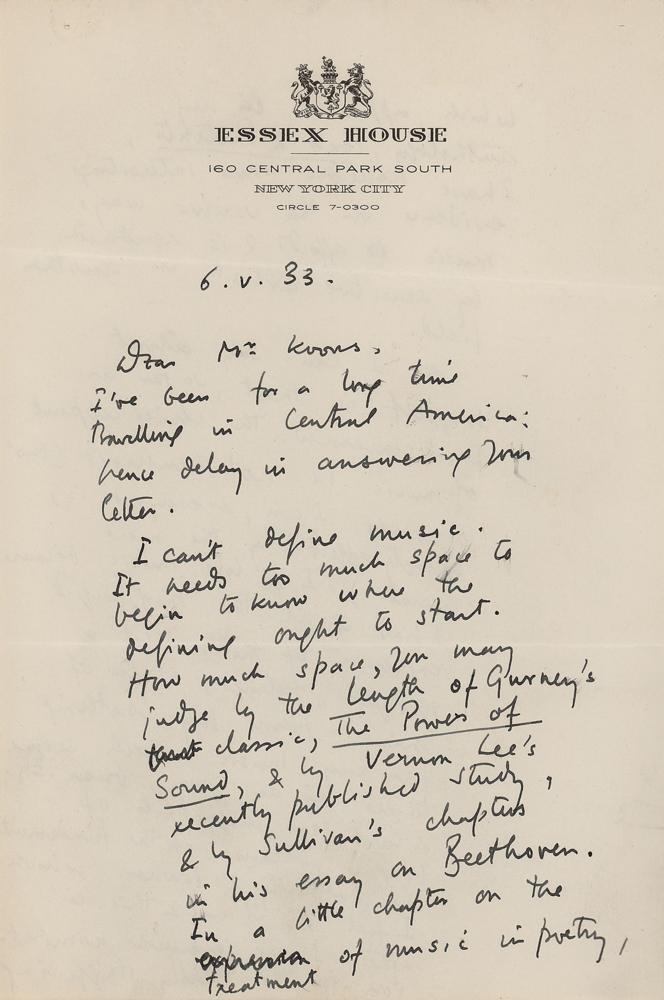 ESSEX HOUSE
160 CENTRAL PARK SOUTH
NEW YORK CITY
CIRCLE 7-0300
6. v. 33.
Dear Mr Koons,
I've been for a long time
travelling in Central America:
hence delay in answering your
letter.
I can't define music.
It needs too much space to
begin to know where the
defining ought to start.
How much space, you may
judge by the length of Gurney's
classic, The Power of
Sound, & by Vernon Lee's
recently published study,
& by Sullivan's chapters
in his essay on Beethoven.
In a little chapter on the
treatment of music in poetry,